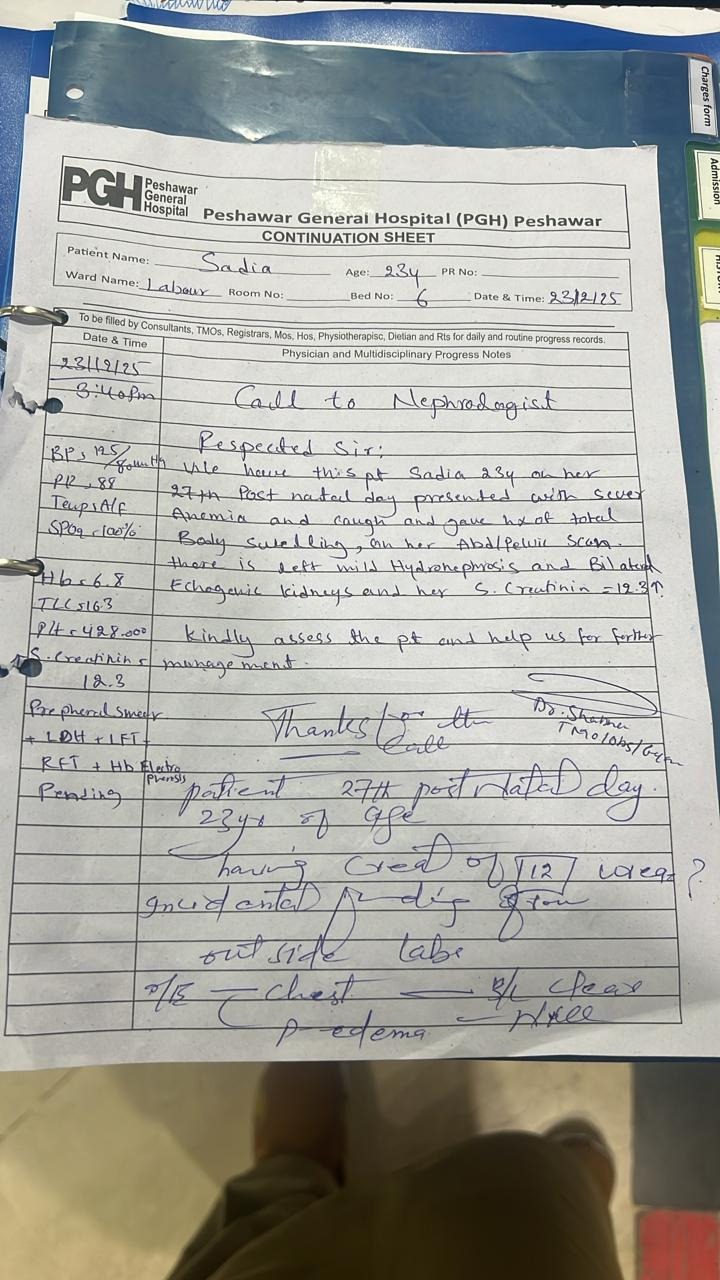 Charges form
Admission
PGH Peshawar General Hospital
Peshawar General Hospital (PGH) Peshawar
CONTINUATION SHEET
Patient Name: Sadia Age: 23y PR No:
Ward Name: Labour Room No: Bed No: 6 Date & Time: 23/12/25
To be filled by Consultants, TMOs, Registrars, Mos, Hos, Physiotherapisc, Dietian and Rts for daily and routine progress records.
Date & Time
Physician and Multidisciplinary Progress Notes
23/12/25
3:40pm
Call to Nephrologist
Respected Sir:
BP: 125/80mmHg
We have this pt Sadia 23y on her
PR: 88
27th Post natal day presented with sever
Temp: A/F
Anemia and cough and gave hx of total
SPO2 = 100%
Body swelling, on her Abd/Pelvic Scan
there is left mild Hydronephrosis and Bilateral
Hb = 6.8
Echogenic kidneys and her S. Creatinin = 12.3↑
TLC = 16.3
Plt = 428.000
Kindly assess the pt and help us for further
↑S. Creatinin =
management.
12.3
Prepheral smear
+ LDH + LFT +
RFT + Hb Electrophoresis
Pending
Dr. Shabna
TMO/Obs/Gynae
Thanks for the
call
patient 27th post Natal day.
23yr of age
having Creat of 12 urea?
Incidental finding from
outside labs
O/E — Chest — B/L Clear
P-edema —